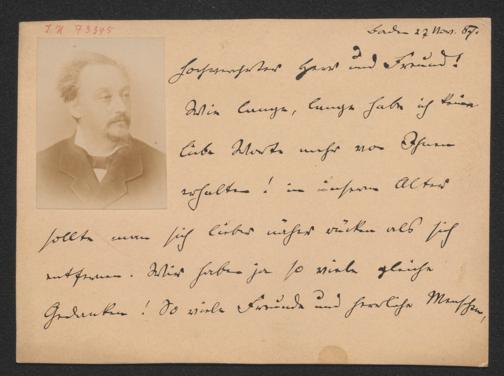 I.N 73345
Baden 27 Nov. 87.
Hochverehrter Herr und Freund!
Wie lange, lange habe ich keine
liebe Worte mehr von Ihnen
erhalten! in unserm Alter
sollte man sich lieber näher rücken als sich
entfernen. Wir haben ja so viele gleiche
Gedanken! So viele Freunde und herrliche Menschen,